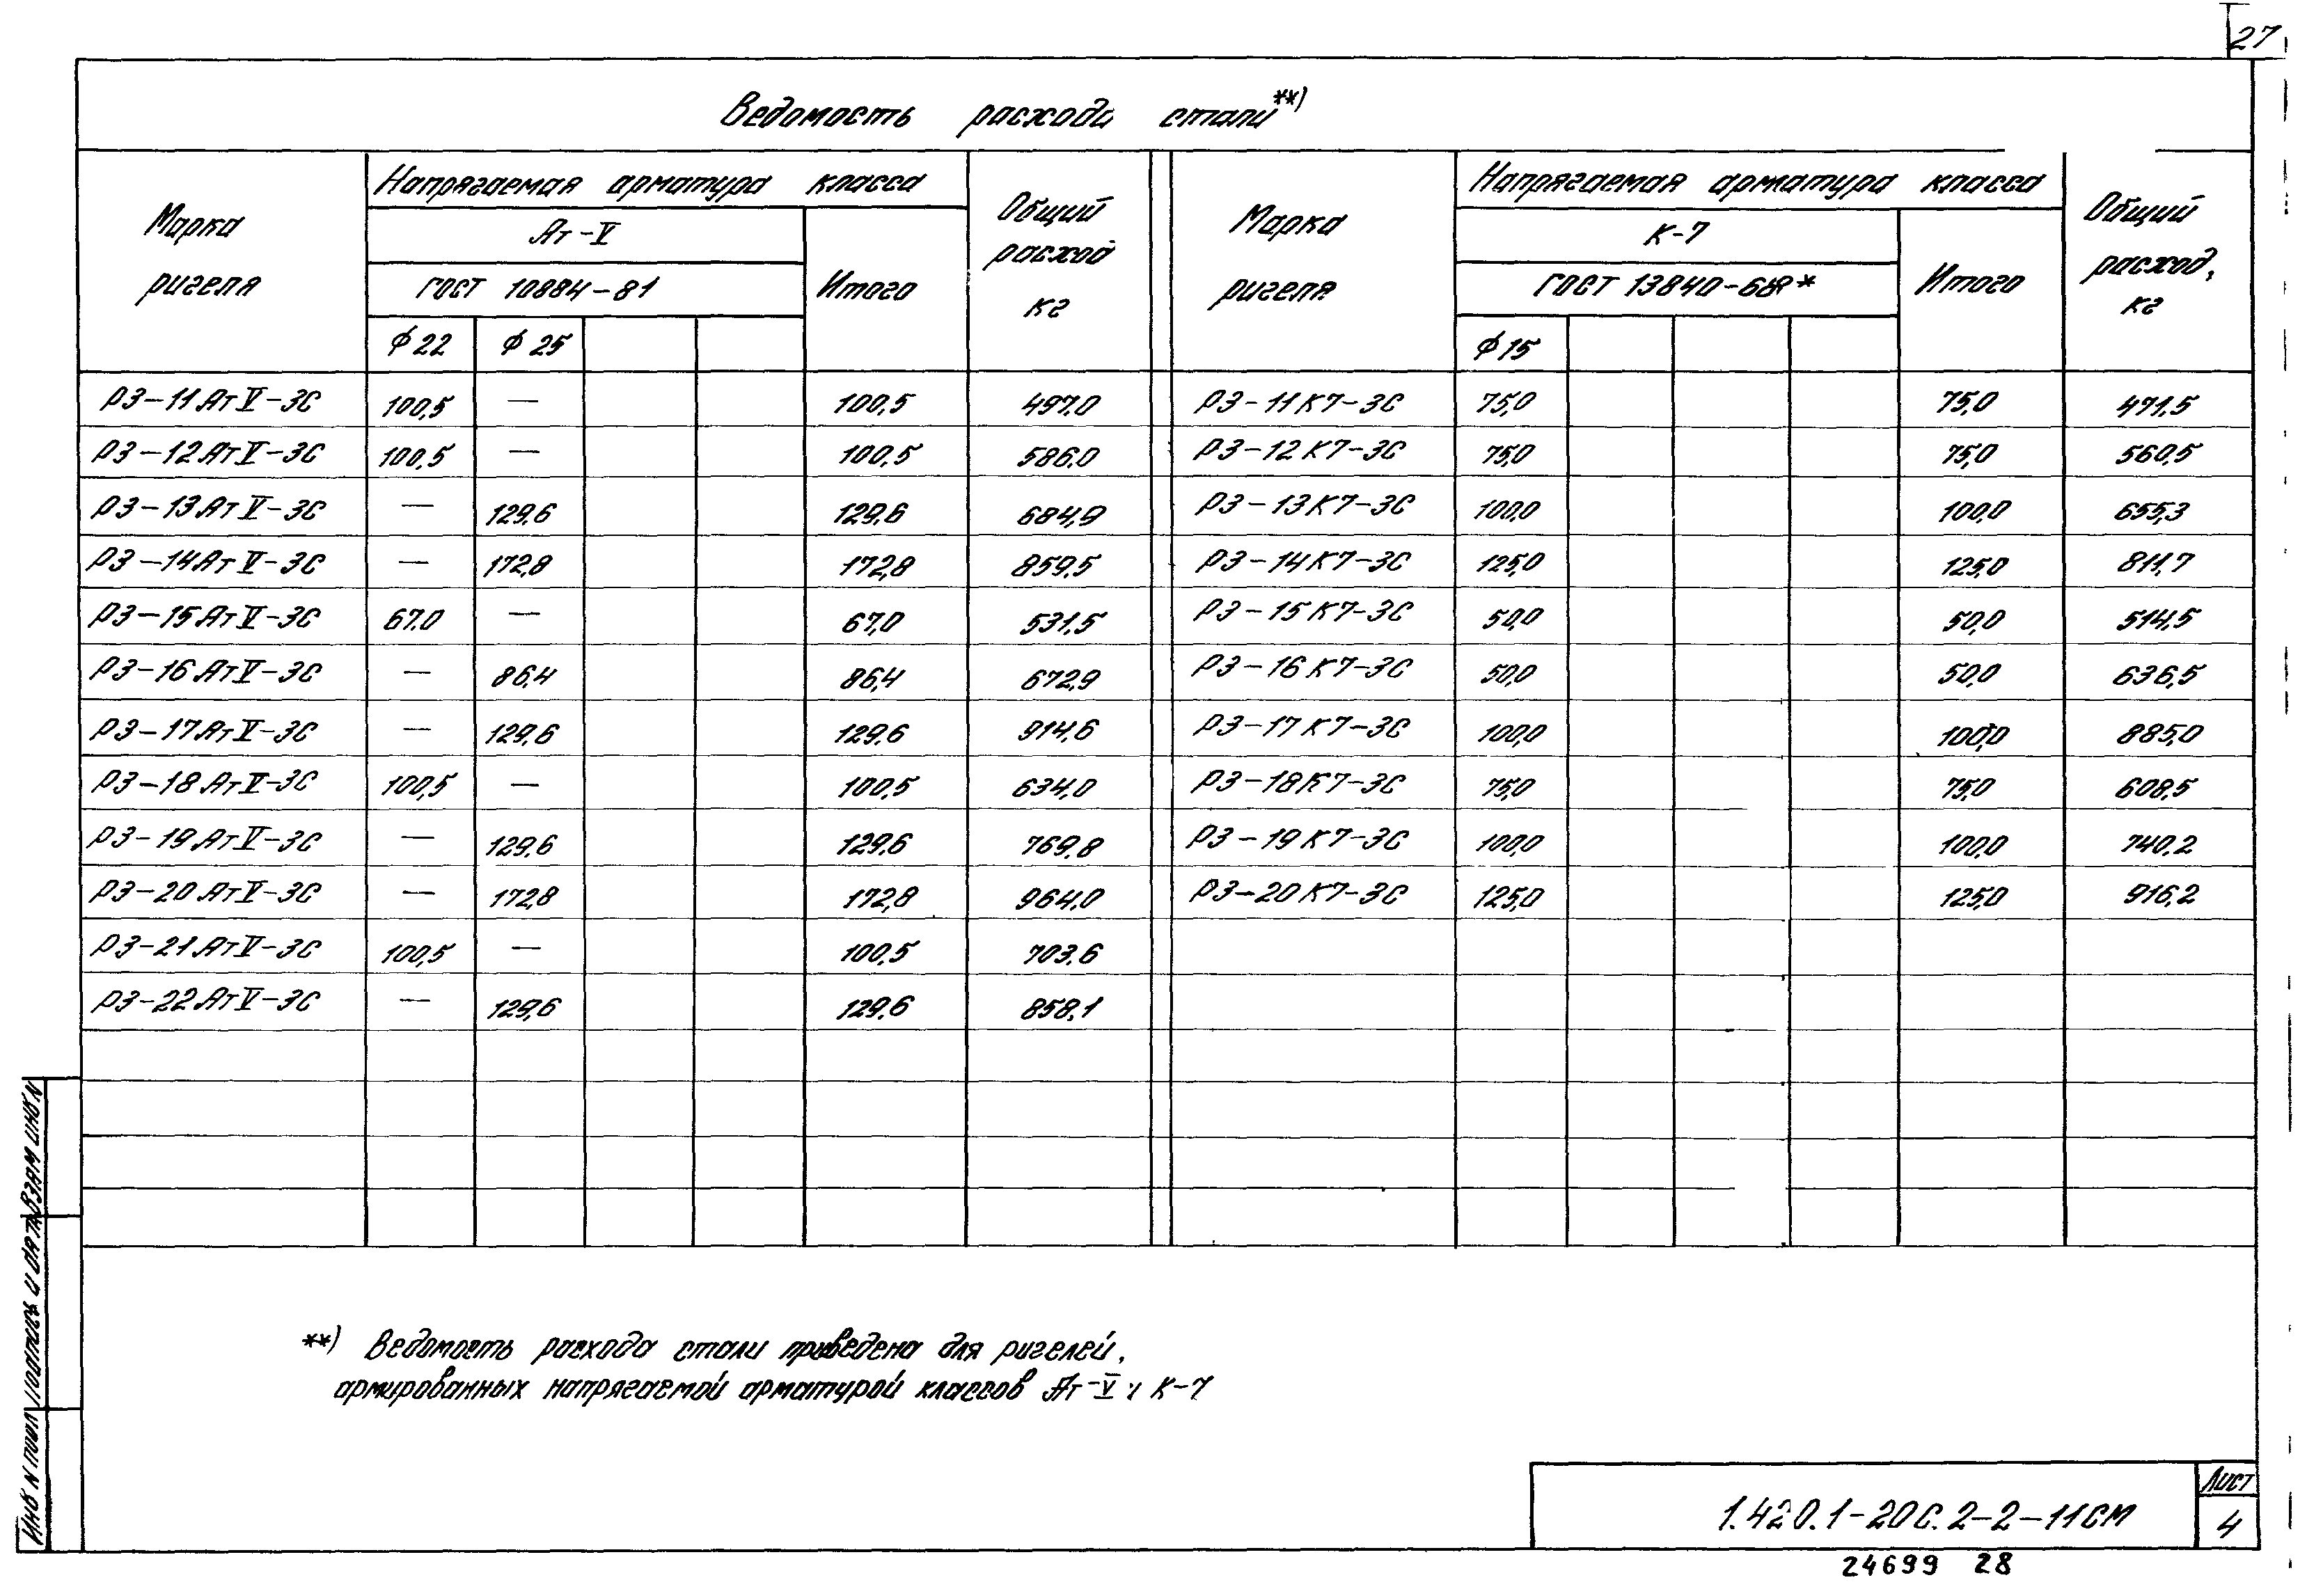 27
Ведомость расхода стали**)
Марка ригеля | Напрягаемая арматура класса | Общий расход кг | Марка ригеля | Напрягаемая арматура класса | Общий расход, кг
Ат-V | Итого | К-7 | Итого
ГОСТ 10884-81 | ГОСТ 13840-68*
ф22 | ф25 | ф15
РЗ-11АтV-3С | 100,5 | — | 100,5 | 497.0 | РЗ-11К7-3С | 75,0 | 75,0 | 471.5
РЗ-12АтV-3С | 100,5 | — | 100,5 | 586.0 | РЗ-12К7-3С | 75,0 | 75,0 | 560,5
РЗ-13АтV-3С | — | 129,6 | 129,6 | 684,9 | РЗ-13К7-3С | 100,0 | 100,0 | 655,3
РЗ-14АтV-3С | — | 172,8 | 172,8 | 859,5 | РЗ-14К7-3С | 125,0 | 125,0 | 811,7
РЗ-15АтV-3С | 67.0 | — | 67,0 | 531,5 | РЗ-15К7-3С | 50,0 | 50,0 | 514,5
РЗ-16АтV-3С | — | 86,4 | 86,4 | 672,9 | РЗ-16К7-3С | 50,0 | 50,0 | 636,5
РЗ-17АтV-3С | — | 129,6 | 129,6 | 914,6 | РЗ-17К7-3С | 100,0 | 100,0 | 885,0
РЗ-18АтV-3С | 100,5 | — | 100,5 | 634,0 | РЗ-18К7-3С | 75,0 | 75,0 | 608,5
РЗ-19АтV-3С | — | 129,6 | 129,6 | 769,8 | РЗ-19К7-3С | 100,0 | 100,0 | 740,2
РЗ-20АтV-3С | — | 172,8 | 172,8 | 964,0 | РЗ-20К7-3С | 125,0 | 125,0 | 916,2
РЗ-21АтV-3С | 100,5 | — | 100,5 | 703,6
РЗ-22АтV-3С | — | 129,6 | 129,6 | 858,1
**) Ведомость расхода стали приведена для ригелей,
армированных напрягаемой арматурой классов Ат-V и К-7
ИНВ N ПОДЛ ПОДПИСЬ И ДАТА ВЗАМ ИНВ N
1.420.1-20С.2-2-11СМ
Лист
4
24699 28